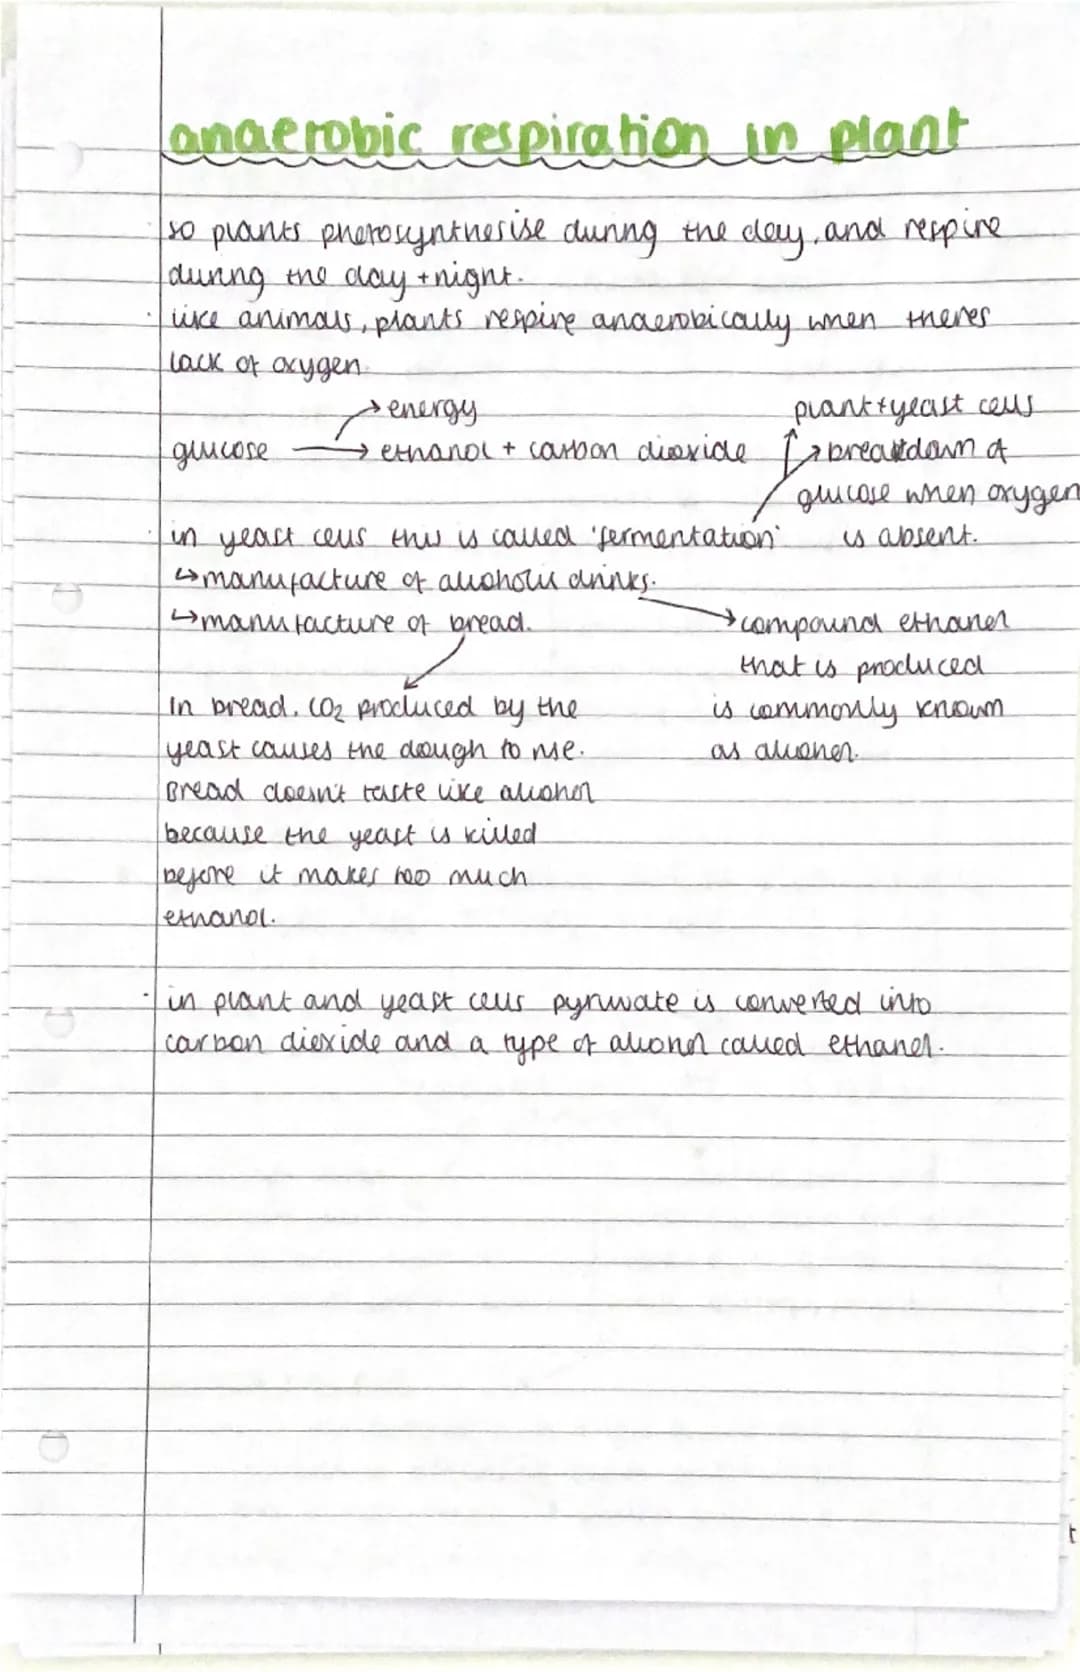 anaerobic respiration in plant
so plants photosynthesise during the day, and respire
during the day + night.
like animals, plants respire anaerobically when theres
lack of oxygen.
→ energy
glucose → ethanol + carbon dioxide
plant + yeast cells
→ breakdown of
glucose when oxygen
is absent.
in yeast cells this is called 'fermentation'
↳ manufacture of alcoholic drinks.
↳ manufacture of bread.
→ compound ethanol
that is produced
is commonly known
as alcohol.
In bread, CO2 produced by the
yeast causes the dough to rise.
Bread doesn't taste like alcohol
because the yeast is killed
before it makes too much
ethanol.
in plant and yeast cells pyruvate is converted into
carbon dioxide and a type of alcohol called ethanol.
t